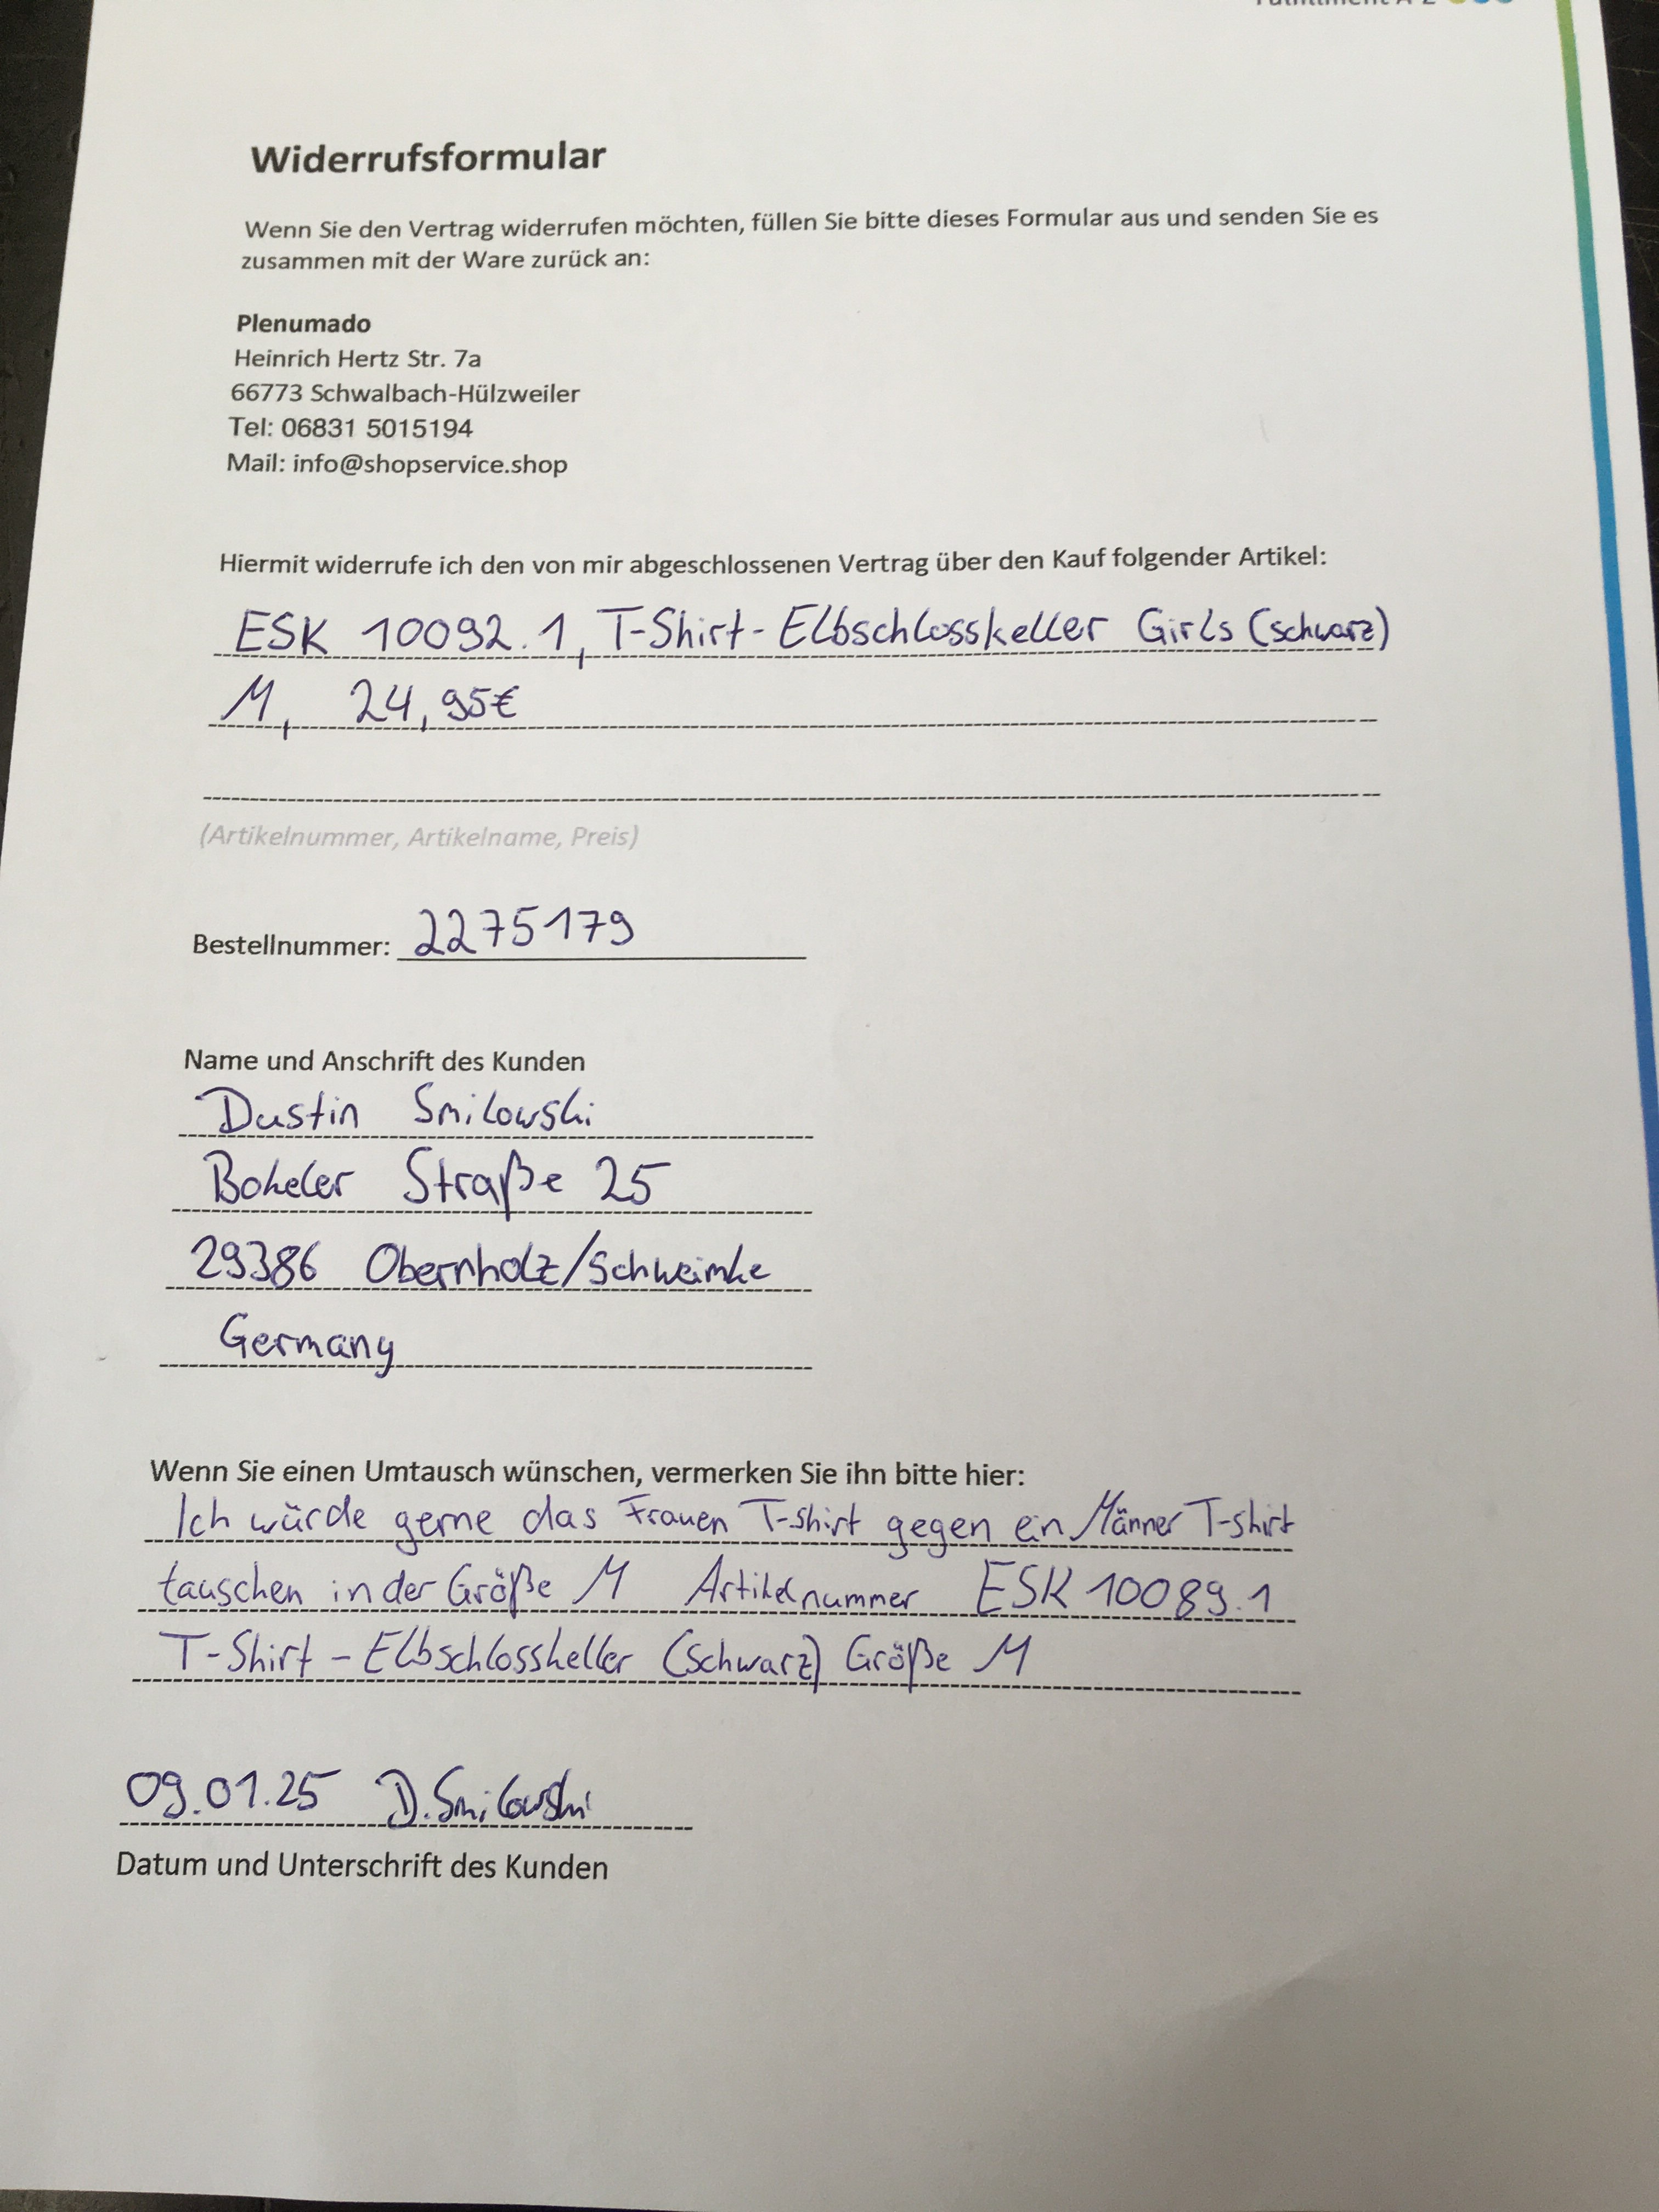 Widerrufsformular
Wenn Sie den Vertrag widerrufen möchten, füllen Sie bitte dieses Formular aus und senden Sie es
zusammen mit der Ware zurück an:
Plenumado
Heinrich Hertz Str. 7a
66773 Schwalbach-Hülzweiler
Tel: 06831 5015194
Mail: info@shopservice.shop
Hiermit widerrufe ich den von mir abgeschlossenen Vertrag über den Kauf folgender Artikel:
ESK 10092.1, T-Shirt-Elbschlosskeller Girls (schwarz)
M, 24,95€
(Artikelnummer, Artikelname, Preis)
Bestellnummer: 2275179
Name und Anschrift des Kunden
Dustin Smilowski
Bokeler Straße 25
29386 Obernholz/Schweimke
Germany
Wenn Sie einen Umtausch wünschen, vermerken Sie ihn bitte hier:
Ich würde gerne das Frauen T-Shirt gegen ein Männer T-shirt
tauschen in der Größe M Artikelnummer ESK 10089.1
T-Shirt - Elbschlosskeller (schwarz) Größe M
09.01.25 D. Smilowski
Datum und Unterschrift des Kunden